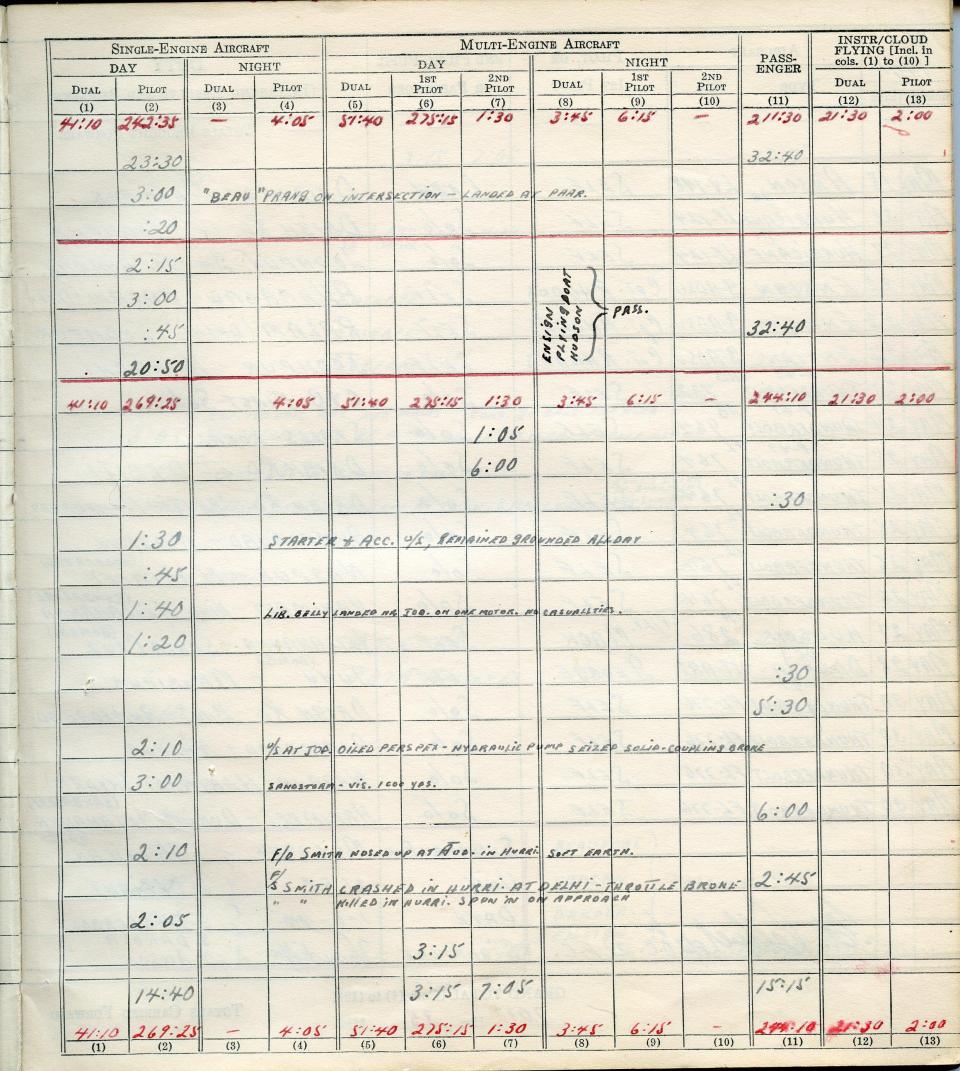 SINGLE-ENGINE AIRCRAFT MULTI-ENGINE AIRCRAFT PASS-ENGER INSTR/CLOUD FLYING [Incl. in cols. (1) to (10) ]
DAY NIGHT DAY NIGHT
DUAL PILOT DUAL PILOT DUAL 1ST PILOT 2ND PILOT DUAL 1ST PILOT 2ND PILOT DUAL PILOT
(1) (2) (3) (4) (5) (6) (7) (8) (9) (10) (11) (12) (13)
41:10 242:35 — 4:05 51:40 275:15 1:30 3:45 6:15 — 211:30 21:30 2:00
23:30 32:40
3:00 "BEAU" PRANG ON INTERSECTION - LANDED AT PAAR.
:20
2:15
3:00 ENSIGN FLYING BOAT HUDSON } PASS.
:45 32:40
20:50
41:10 269:25 4:05 51:40 275:15 1:30 3:45 6:15 — 244:10 21:30 2:00
1:05
6:00
:30
1:30 STARTER & ACC. U/S, REMAINED GROUNDED ALL DAY
:45
1:40 LIB. BELLY LANDED NR JOD. ON ONE MOTOR. NO CASUALTIES.
1:20
:30
5:30
2:10 U/S AT JOD. OILED PERSPEX - HYDRAULIC PUMP SEIZED SOLID - COUPLING BROKE
3:00 SANDSTORM - VIS. 1000 YDS.
6:00
2:10 F/O SMITH NOSED UP AT JOD. IN HURRI. SOFT EARTH.
F/S SMITH CRASHED IN HURRI. AT DELHI - THROTTLE BROKE 2:45
" " KILLED IN HURRI. SPUN IN ON APPROACH
2:05
3:15
14:40 3:15 7:05 15:15
41:10 269:25 — 4:05 51:40 275:15 1:30 3:45 6:15 — 244:10 21:30 2:00
(1) (2) (3) (4) (5) (6) (7) (8) (9) (10) (11) (12) (13)